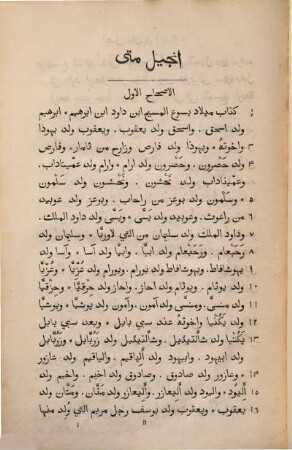 انجيل متى
الاصحاح الاول
١ كتاب ميلاد يسوع المسيح ابن داود ابن ابرهيم • ابرهيم
ولد اسحق • واسحق ولد يعقوب • ويعقوب ولد يهوذا
٣ واخوته • ويهوذا ولد فارص وزارح من ثامار • وفارص
٤ ولد حصرون • وحصرون ولد ارام • وارام ولد عميناداب
وعميناداب ولد نحشون • ونحشون ولد سلمون
٥ وسلمون ولد بوعز من راحاب • وبوعز ولد عوبيد
٦ من راعوث • وعوبيد ولد يسى • ويسى ولد داود الملك •
٧ وداود الملك ولد سليمان من التي لاوريا • وسليمان ولد
٨ رحبعام • ورحبعام ولد ابيا • وابيا ولد آسا • وآسا ولد
٩ يهوشافاط • ويهوشافاط ولد يورام • ويورام ولد عزيا • وعزيا
١٠ ولد يوثم • ويوثم ولد احاز • واحاز ولد حزقيا • وحزقيا
١١ ولد منسى • ومنسى ولد آمون • وآمون ولد يوشيا • ويوشيا
١٢ ولد يكنيا واخوته عند سبي بابل • وبعد سبي بابل
١٣ يكنيا ولد شألتيئيل • وشألتيئيل ولد زربابل • وزربابل
١٤ ولد ابيهود • وابيهود ولد الياقيم • والياقيم ولد عازور
• وعازور ولد صادوق • وصادوق ولد اخيم • واخيم ولد
١٥ اليود • واليود ولد اليعازر • واليعازر ولد متان • ومتان ولد
١٦ يعقوب • ويعقوب ولد يوسف رجل مريم التي ولد منها
B ١